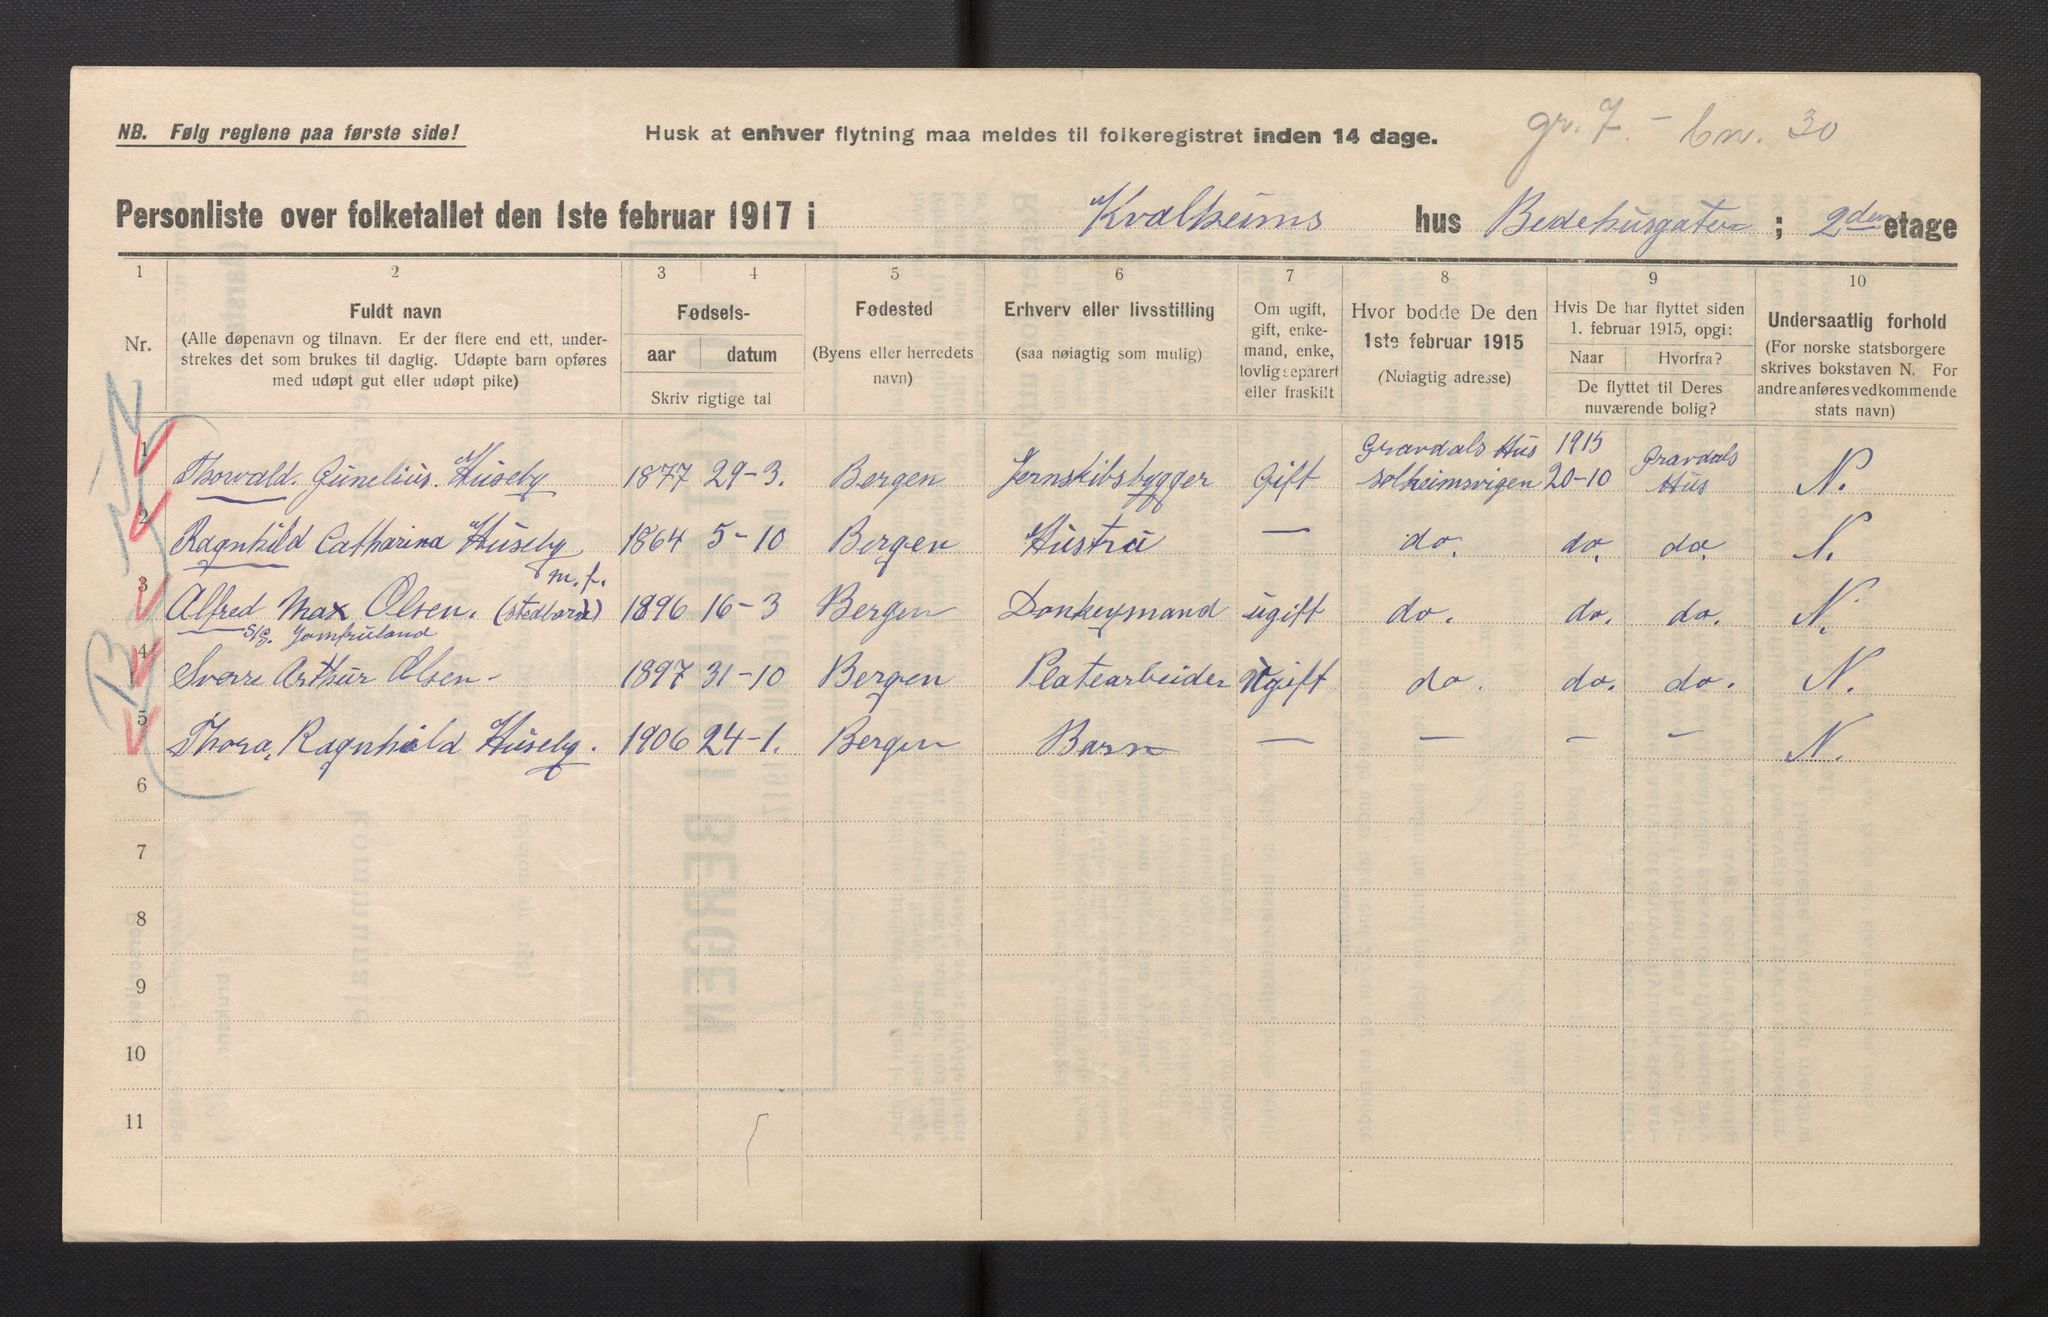 NB. Følg reglene paa første side!
Husk at enhver flytning maa meldes til folkeregistret inden 14 dage.
gr. 7. - bn. 30
Personliste over folketallet den 1ste februar 1917 i Kvalheims hus Bedehusgaten ; 2den etage
1 2 3 4 5 6 7 8 9 10
Nr.
Fuldt navn
(Alle døpenavn og tilnavn. Er der flere end ett, under-
strekes det som brukes til daglig. Udøpte barn opføres
med udøpt gut eller udøpt pike)
Fødsels-
aar datum
Skriv rigtige tal
Fødested
(Byens eller herredets
navn)
Erhverv eller livsstilling
(saa nøiagtig som mulig)
Om ugift,
gift, enke-
mand, enke,
lovlig separert
eller fraskilt
Hvor bodde De den
1ste februar 1915
(Nøiagtig adresse)
Hvis De har flyttet siden
1. februar 1915, opgi:
Naar Hvorfra?
De flyttet til Deres
nuværende bolig?
Undersaatlig forhold
(For norske statsborgere
skrives bokstaven N. For
andre anføres vedkommende
stats navn)
1 Thorvald. Gunelius. Huseby 1877 29-3. Bergen Jernskibsbygger Gift Gravdals Hus Solheimsvigen 1915 20-10 Gravdals Hus N.
2 Ragnhild Catharina Huseby 1864 5-10 Bergen Hustru — do. do. do. N.
m. f.
3 Alfred Max Olsen. (stedbarn) 1896 16-3 Bergen Donkeymand ugift do. do. do. N.
S/S. Jomfruland
4 Sverre Arthur Olsen - 1897 31-10 Bergen Platearbeider Ugift do. do. do. N.
5 Thora, Ragnhild Huseby. 1906 24-1. Bergen Barn — — — — N.
6
7
8
9
10
11